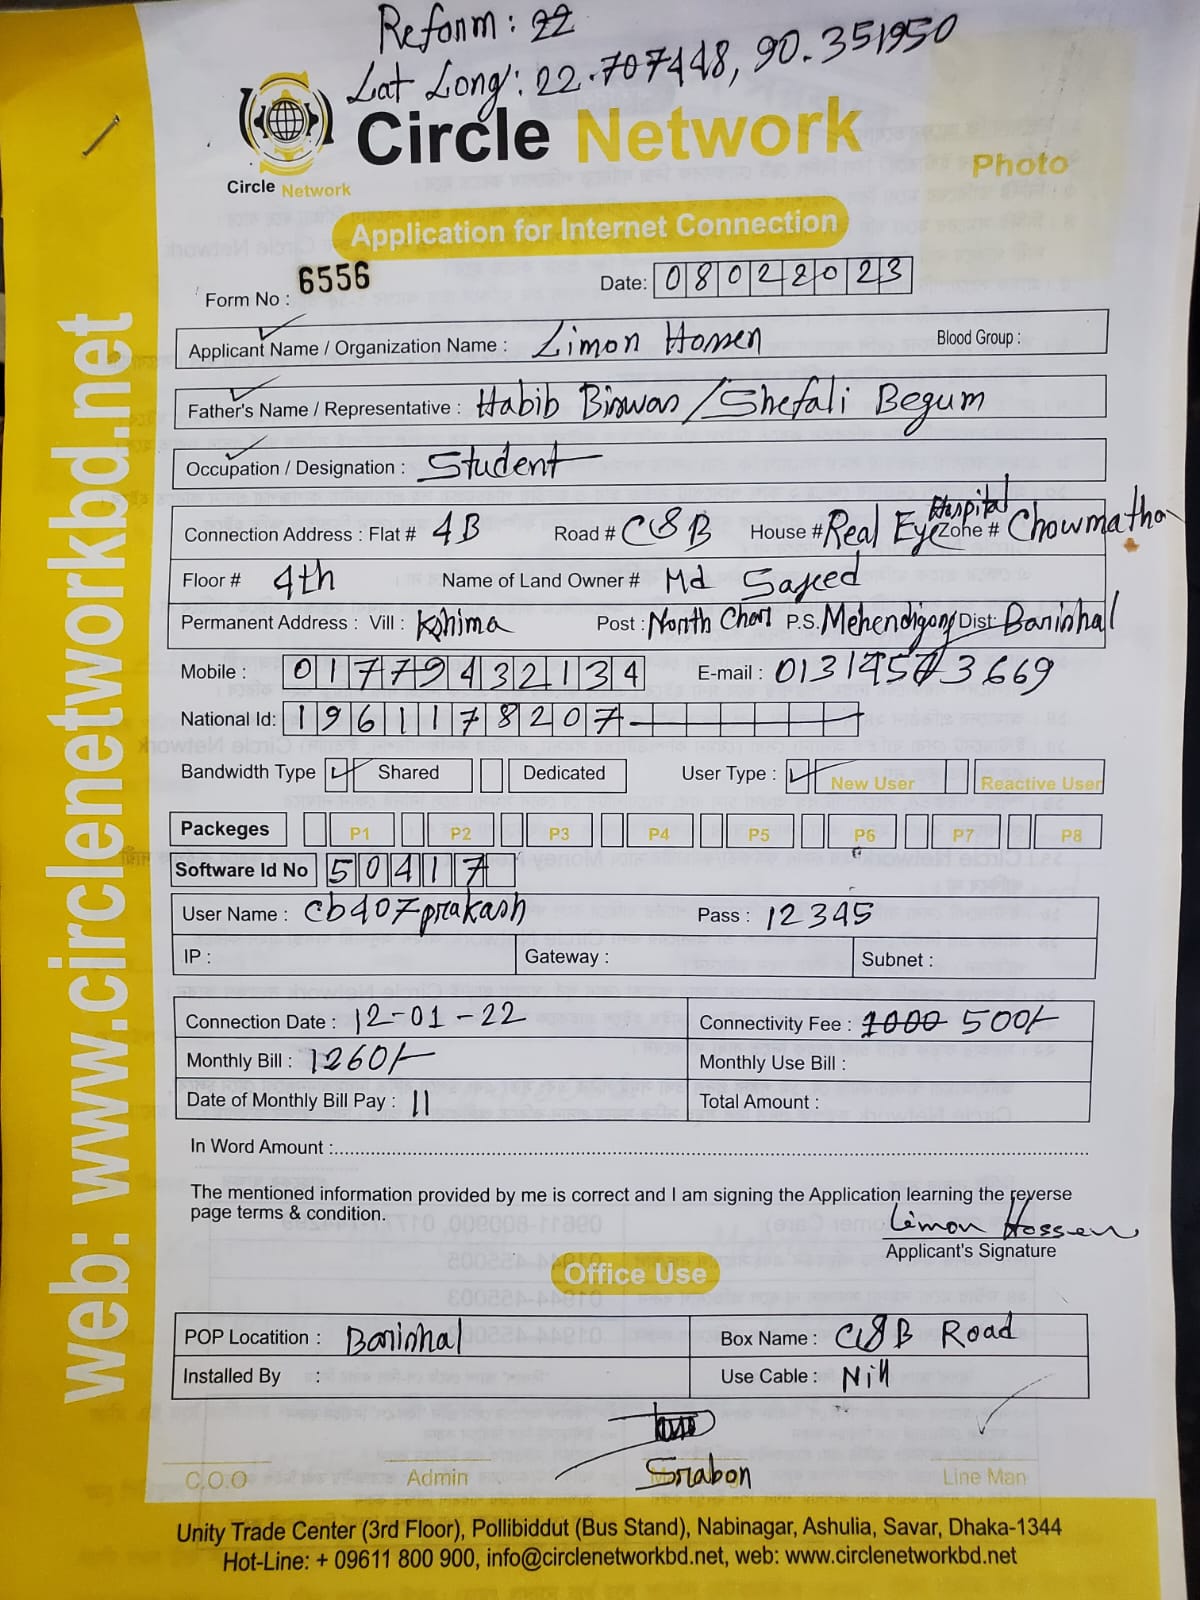 Reform: 22
Lat Long: 22.707448, 90.351950
Circle Network
Circle Network
Photo
Application for Internet Connection
Form No : 6556
Date: 08022023
Applicant Name / Organization Name : Limon Hossen Blood Group :
Father's Name / Representative : Habib Biswas / Shefali Begum
Occupation / Designation : Student
Connection Address : Flat # 4B Road # C&B House # Real Eye Hospital Zone # Chowmatha
Floor # 4th Name of Land Owner # Md Sajeed
Permanent Address : Vill : Post : North Chari P.S. Mehendigonj Dist: Barishal
Mobile : 01779432134 E-mail : 01319573669
National Id: 1961178207
Bandwidth Type Shared Dedicated User Type : New User Reactive User
Packeges P1 P2 P3 P4 P5 P6 P7 P8
Software Id No 50417
User Name : cb407prakash Pass : 12345
IP : Gateway : Subnet :
Connection Date : 12-01-22 Connectivity Fee : 1000 500/-
Monthly Bill : 1260/- Monthly Use Bill :
Date of Monthly Bill Pay : 11 Total Amount :
In Word Amount :
The mentioned information provided by me is correct and I am signing the Application learning the reverse
page terms & condition.
Limon Hossen
Applicant's Signature
Office Use
POP Locatition : Barishal Box Name : C&B Road
Installed By : Use Cable : Nill
Srabon
C.O.O Admin Line Man
Unity Trade Center (3rd Floor), Pollibiddut (Bus Stand), Nabinagar, Ashulia, Savar, Dhaka-1344
Hot-Line: + 09611 800 900, info@circlenetworkbd.net, web: www.circlenetworkbd.net
web: www.circlenetworkbd.net